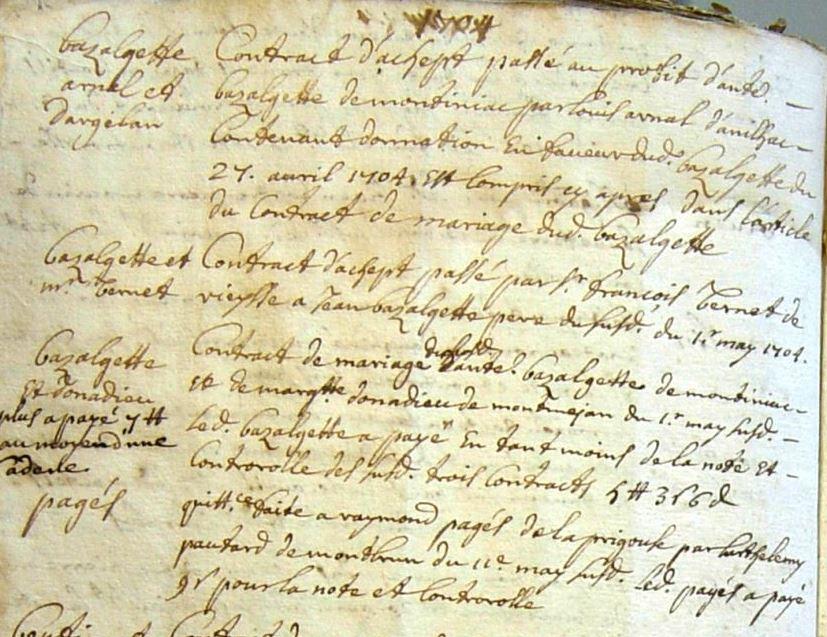 1704
bazalgette
arnal et
Dargelan
Contract d'achept passé au profit d'antd. —
bazalgette de montiniac par louis arnal d'anilhac —
Contenant donnation en faveur dud. bazalgette du
27. auril 1704 est Compris cy apres dans l'article
du Contract de mariage dud. bazalgette
bazalgette et
mr. Bernet
Contract d'achept passé par sr. françois Bernet de
a Jean bazalgette pere du susd. du 1.r may 1704.
bazalgette
Et donadieu
plus a payé 7 ₶
au moyen d'une
Contract de mariage dususd. d'anté. bazalgette de montiniac
et de margtte. donadieu de montmejan du 1.r may susd. —
Led. bazalgette a payé En tant moins de la note Et —
Controrolle des susd. trois Contracts 5 ₶ 3 s 6 d
pagés
quitt.ce faite a raymond pagés de la prigouse par barthelemy
pautard de montbrun du 11e may susd. Led. pagés a payé
9 s pour la note et Controrolle